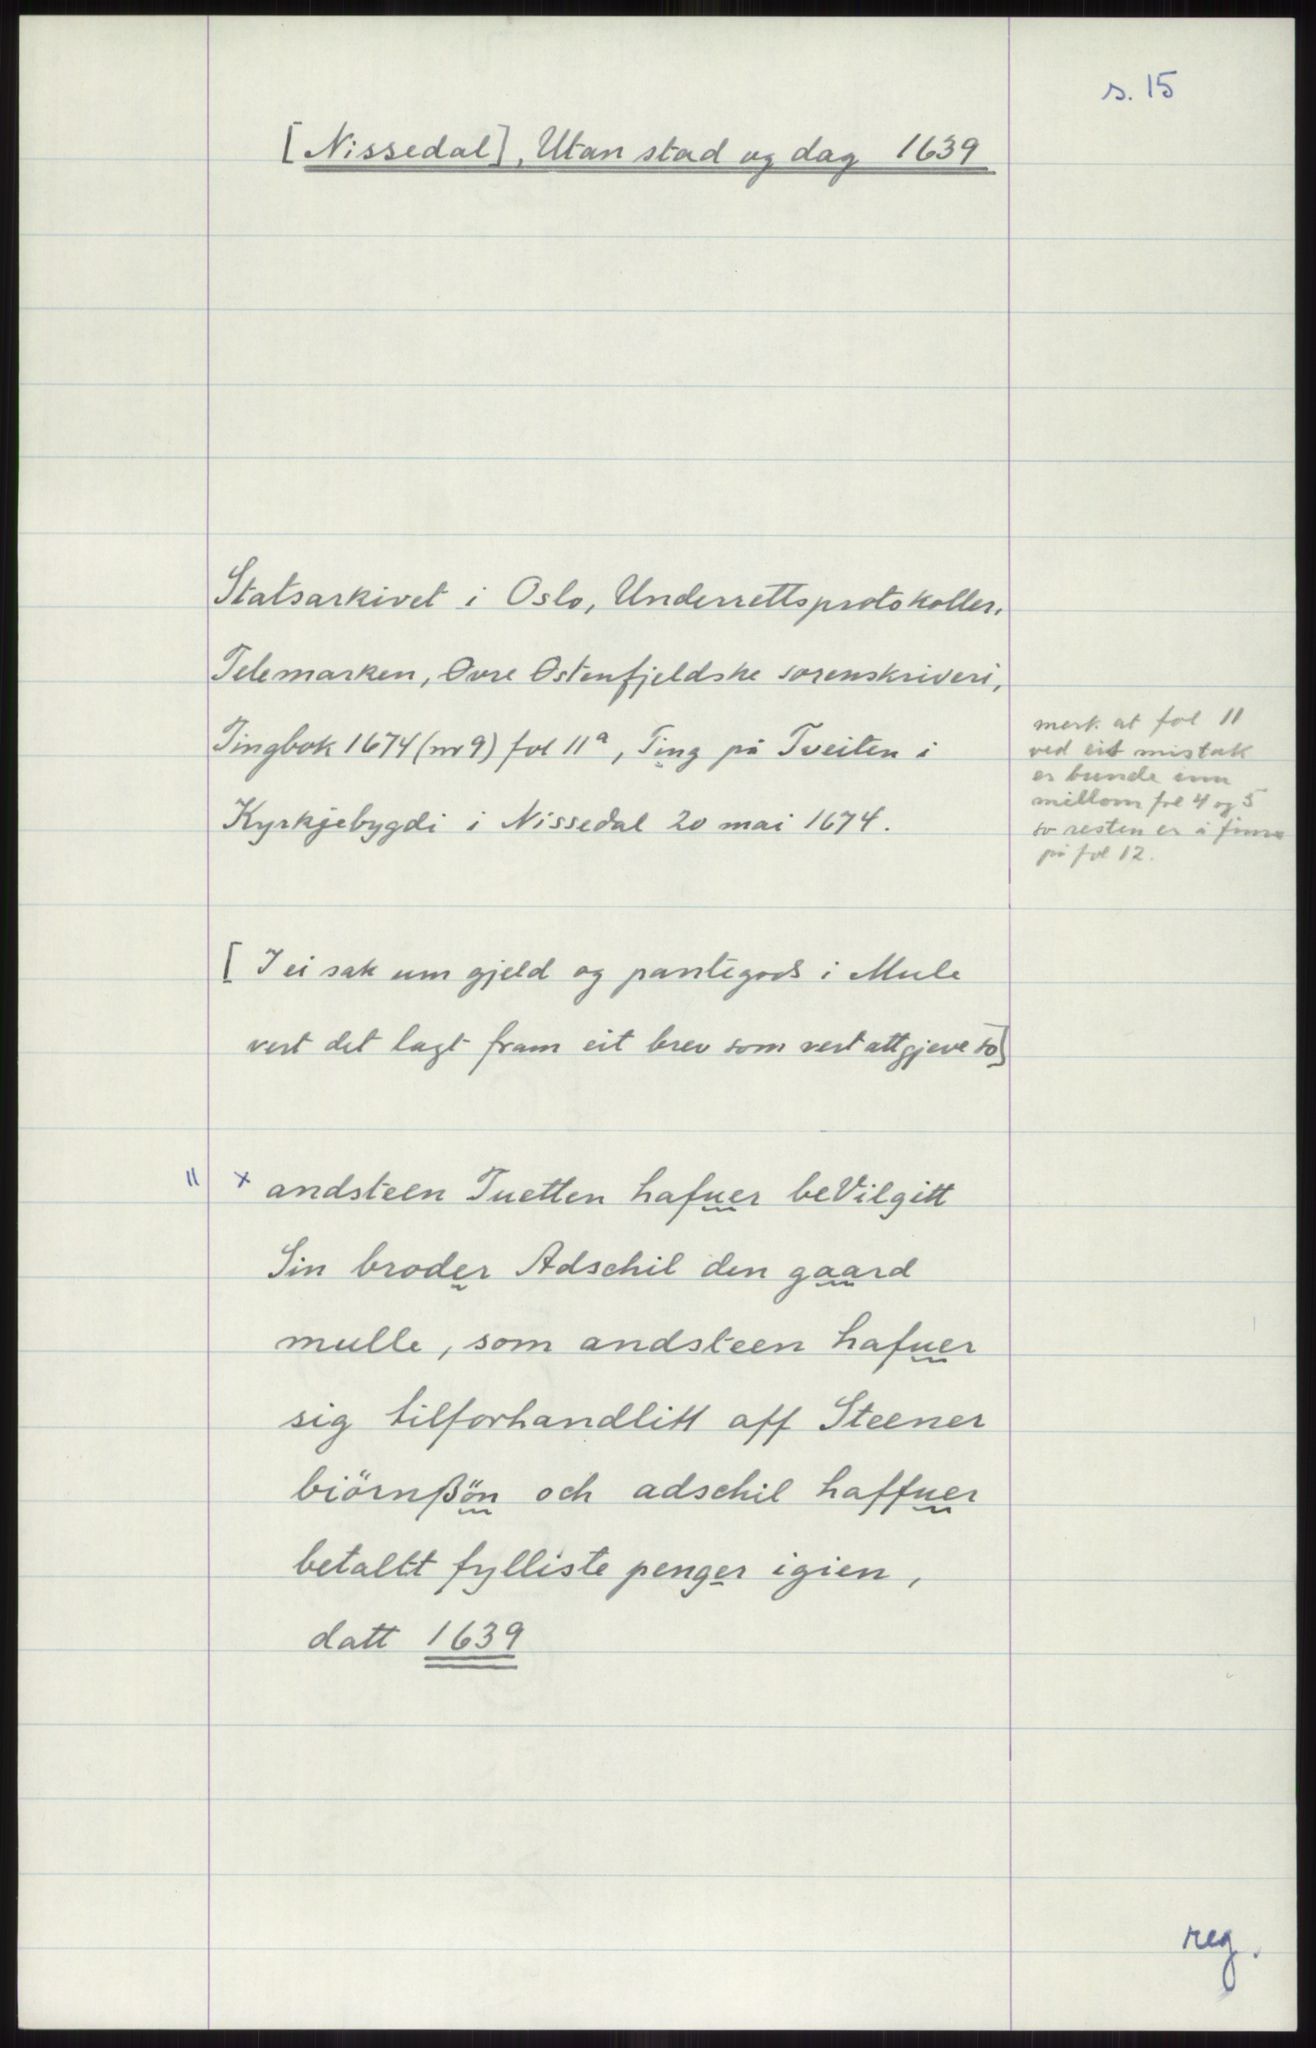 s. 15
[Nissedal], Utan stad og dag 1639
Statsarkivet i Oslo, Underrettsprotokoller.
Telemarken, Øvre Østenfjeldske sorenskriveri,
Tingbok 1674 (nr 9) fol 11a, Ting på Tveiten i
Kyrkjebygdi i Nissedal 20 mai 1674.
merk at fol 11
ved eit mistak
er bunde inn
millom fol 4 og 5
so resten er å finna
på fol 12.
[ I ei sak um gjeld og pantegods i Mule
vert det lagt fram eit brev som vert attgjeve so]
" x andsteen Tuetten hafuer beVilgitt
Sin broder Adschil den gaard
mulle, som andsteen hafuer
sig tilforhandlitt aff Steener
biörnßön och adschil haffuer
betaltt fylliste penger igien,
datt 1639
reg.